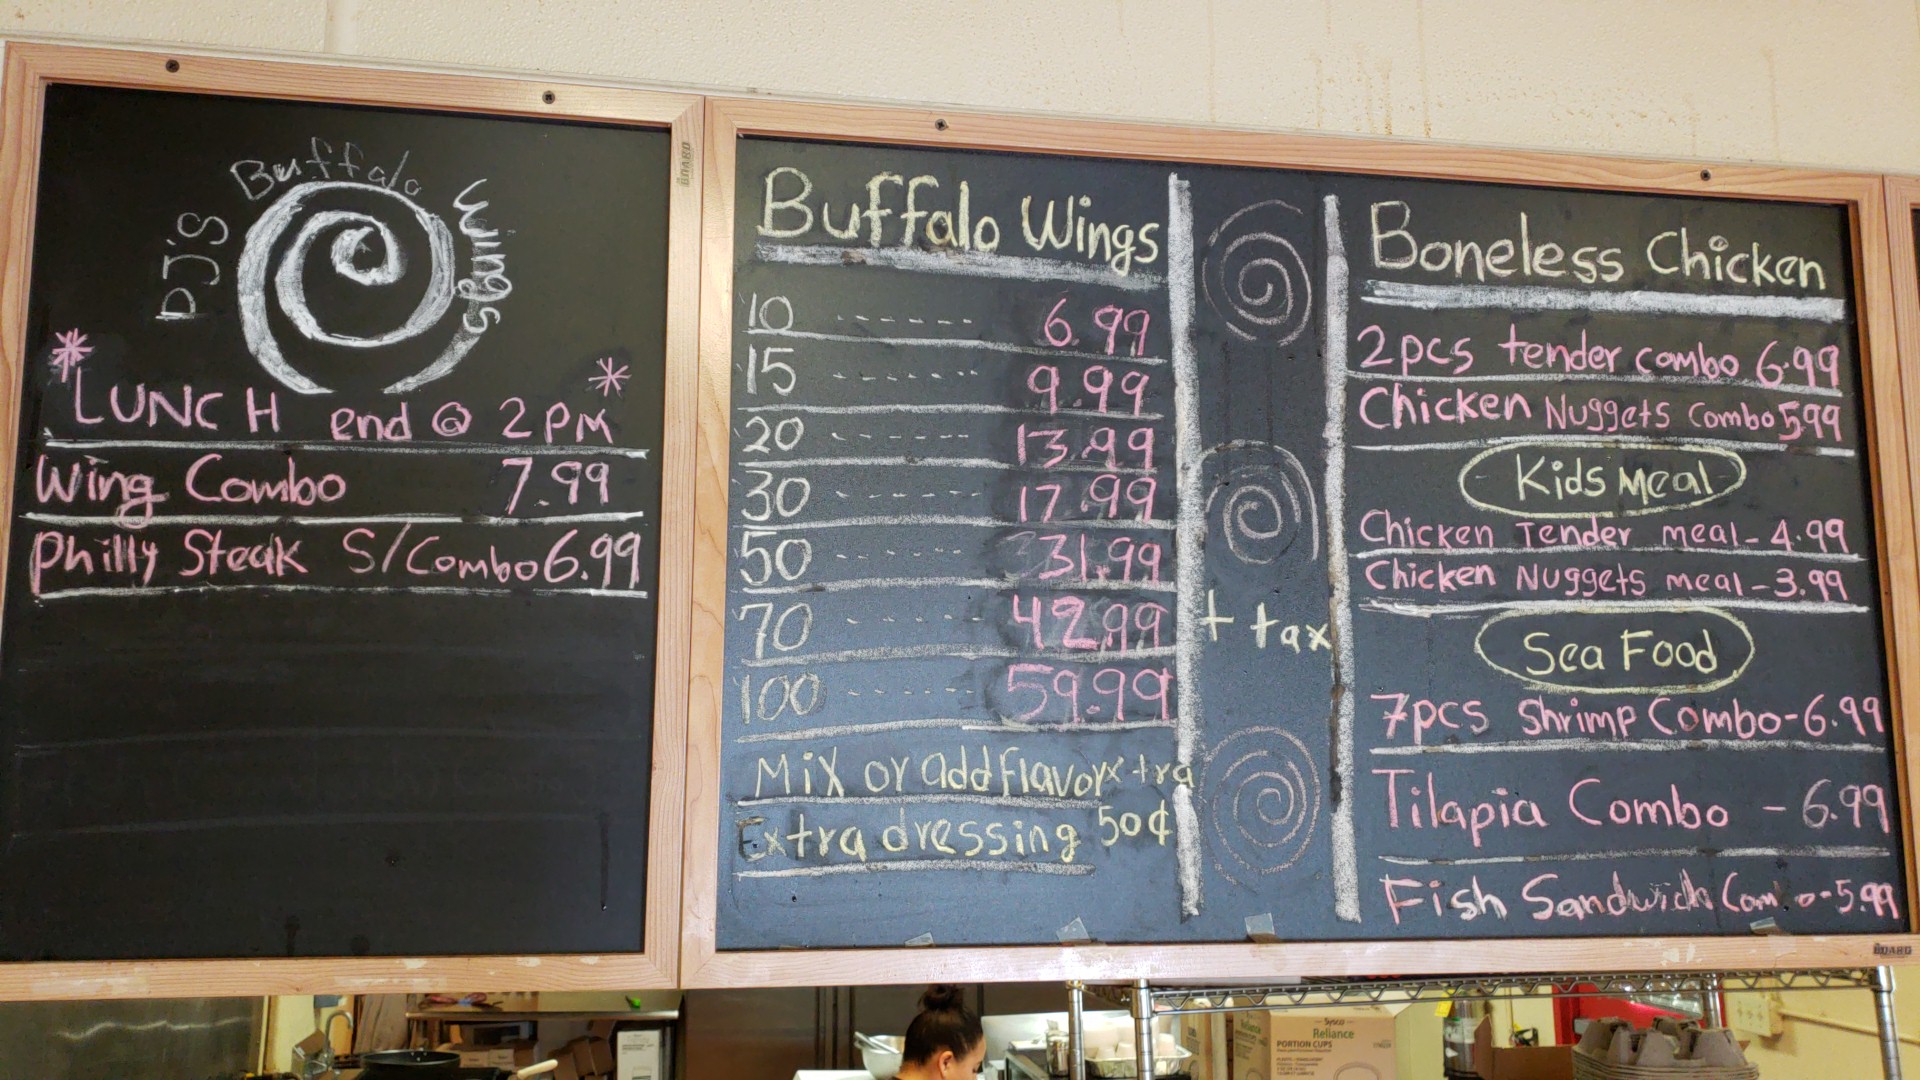 PJ's Buffalo Wings
* LUNCH end @ 2PM *
Wing Combo 7.99
Philly Steak S/Combo 6.99
BOARD
Buffalo Wings
10 ------- 6.99
15 ------- 9.99
20 ------- 13.99
30 ------- 17.99
50 ------- 31.99
70 ------- 42.99
100 ------ 59.99
Mix or add flavor xtra
Extra dressing 50¢
+ tax
Boneless Chicken
2pcs tender combo 6.99
Chicken Nuggets Combo 5.99
Kids Meal
Chicken Tender meal - 4.99
Chicken Nuggets meal - 3.99
Sea Food
7pcs Shrimp Combo - 6.99
Tilapia Combo - 6.99
Fish Sandwich Com o - 5.99
BOARD
Sysco
Reliance
PORTION CUPS